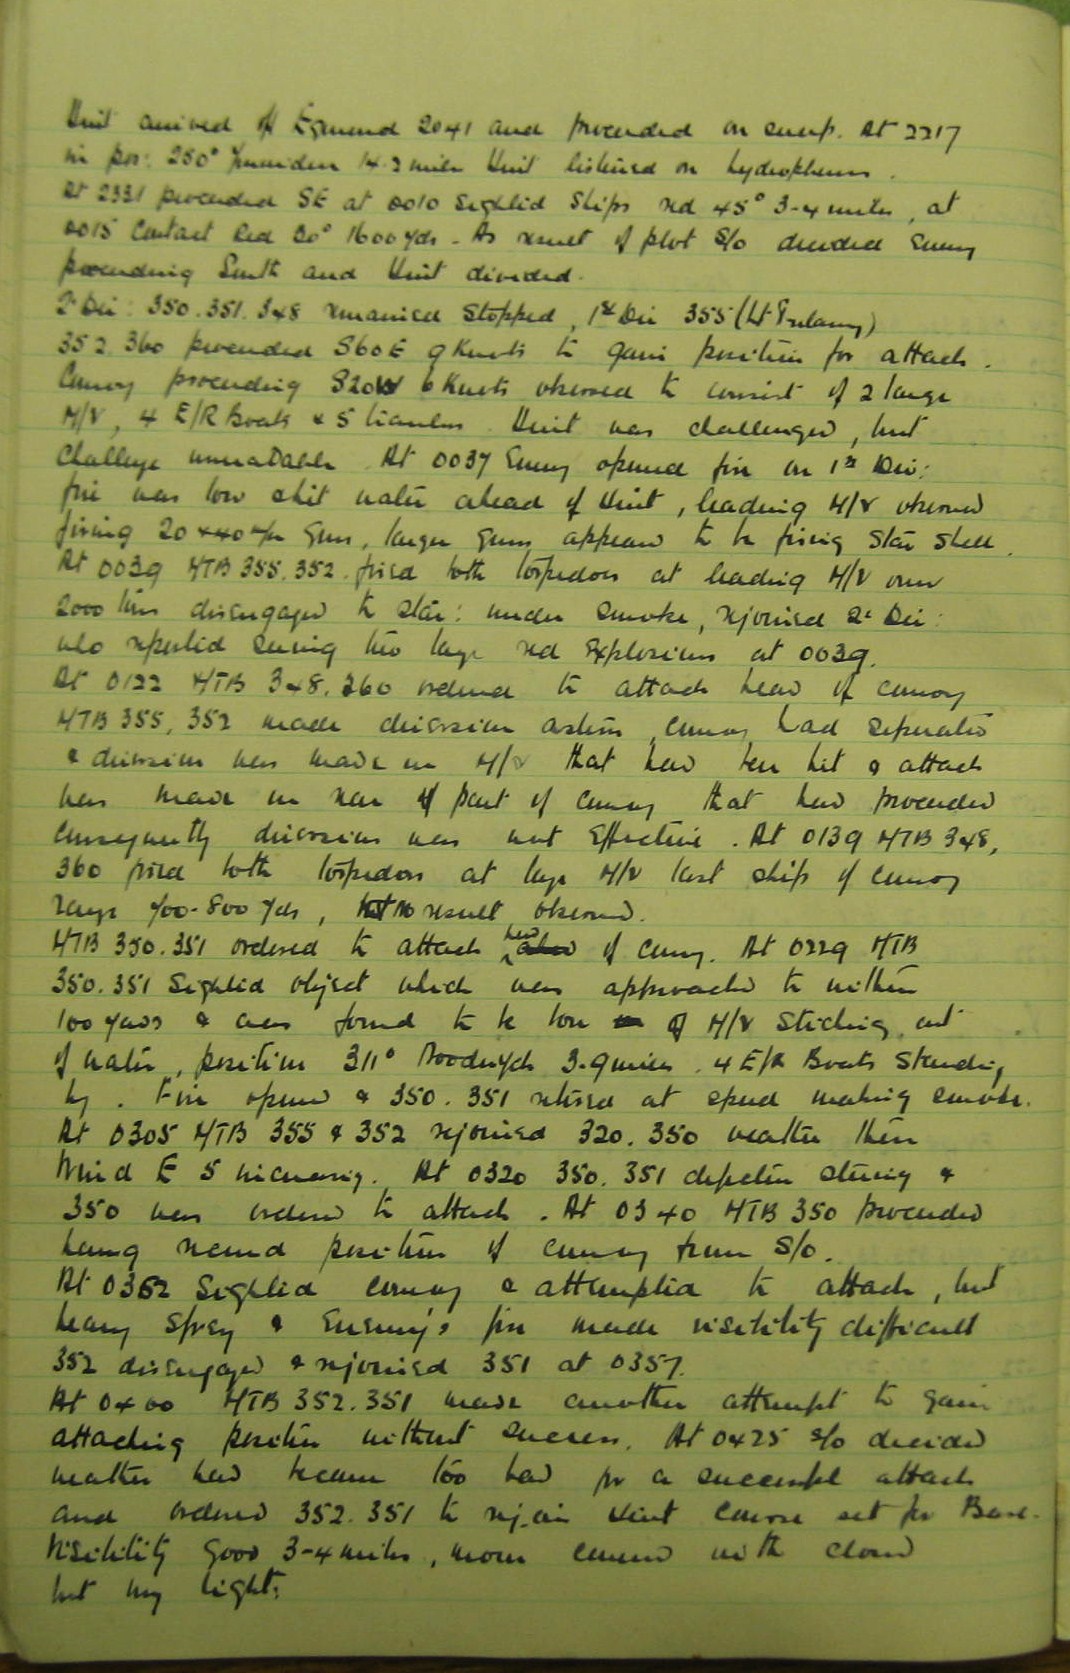 Unit arrived off Egmond 2041 and proceeded on sweep. At 2217
in pos: 250° Ymuiden 14.2 miles Unit listened on hydrophones.
At 2331 proceeded SE at 0010 sighted ships red 45° 3-4 miles, at
0015 contact Red 20° 1600 yds - As result of plot S/O decided enemy
proceeding South and Unit divided.
2° Div: 350.351.348 remained stopped, 1st Div 355 (Lt
352.360 proceeded S60E 9 Knots to gain position for attack.
Convoy proceeding S20W 6 Knots observed to consist of 2 large
M/V, 4 E/R Boats & 5 trawlers. Unit was challenged, but
challenge unreadable. At 0037 Enemy opened fire on 1st Div:
fire was low & hit water ahead of Unit, leading M/V observed
firing 20 & 40 m/m Guns, larger Guns appeared to be firing Star Shell.
At 0039 MTB 355.352. fired both torpedoes at leading M/V
2000 then disengaged to star: under smoke, rejoined 2° Div:
who reported seeing two large red explosions at 0039.
At 0122 MTB 348.360 ordered to attack head of convoy
MTB 355, 352 made diversion astern, convoy had separated
& diversion was made on M/V that had been hit & attack
was made on rear of part of convoy that had proceeded
consequently diversion was not effective. At 0139 MTB 348,
360 fired both torpedoes at large M/V last ship of convoy
range 700-800 yds, no result observed.
MTB 350.351 ordered to attack head of convoy. At 0229 MTB
350.351 sighted object which was approached to within
100 yards & was found to be bow of M/V sticking out
of water, position 311° Noordwyk 3.9 miles. 4 E/R Boats standing
by. Fire opened & 350.351 retired at speed making smoke.
At 0305 MTB 355 & 352 rejoined 320.350 weather then
Wind E 5 increasing. At 0320 350.351 steering &
350 was ordered to attack. At 0340 MTB 350 proceeded
having received position of convoy from S/O.
At 0352 Sighted convoy & attempted to attack, but
heavy spray & Enemy's fire made visibility difficult
352 disengaged & rejoined 351 at 0357.
At 0400 MTB 352.351 made another attempt to gain
attacking position without success. At 0425 S/O decided
weather had become too bad for a successful attack
and ordered 352.351 to rejoin Unit course set for Base.
Visibility Good 3-4 miles, moon covered with cloud
but very light: